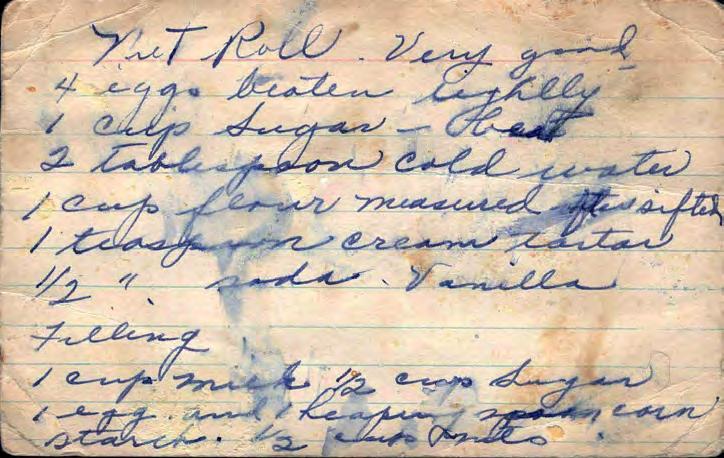 Nut Roll. Very good
4 eggs beaten lightly
1 cup sugar - Beat
2 tablespoon cold water
1 cup flour measured after sifted
1 teaspoon cream tartar
1/2 " soda. Vanilla
Filling
1 cup milk 1/2 cup sugar
1 egg and 1 heaping spoon corn
starch. 1/2 cup nuts